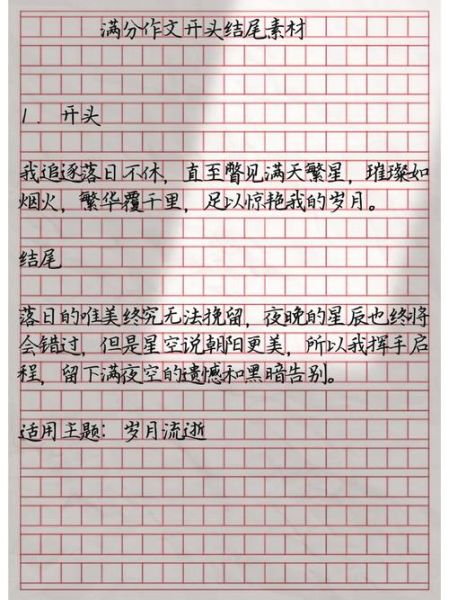 满分作文开头结尾素材
1. 开头
我追逐落日不休，直至瞥见满天繁星，璀璨如
烟火，繁华覆千里，足以惊艳我的岁月。
结尾
落日的唯美终究无法挽留，夜晚的星辰也终将
会错过，但是星空说朝阳更美，所以我挥手启
程，留下满夜空的遗憾和黑暗告别。
适用主题：岁月流逝